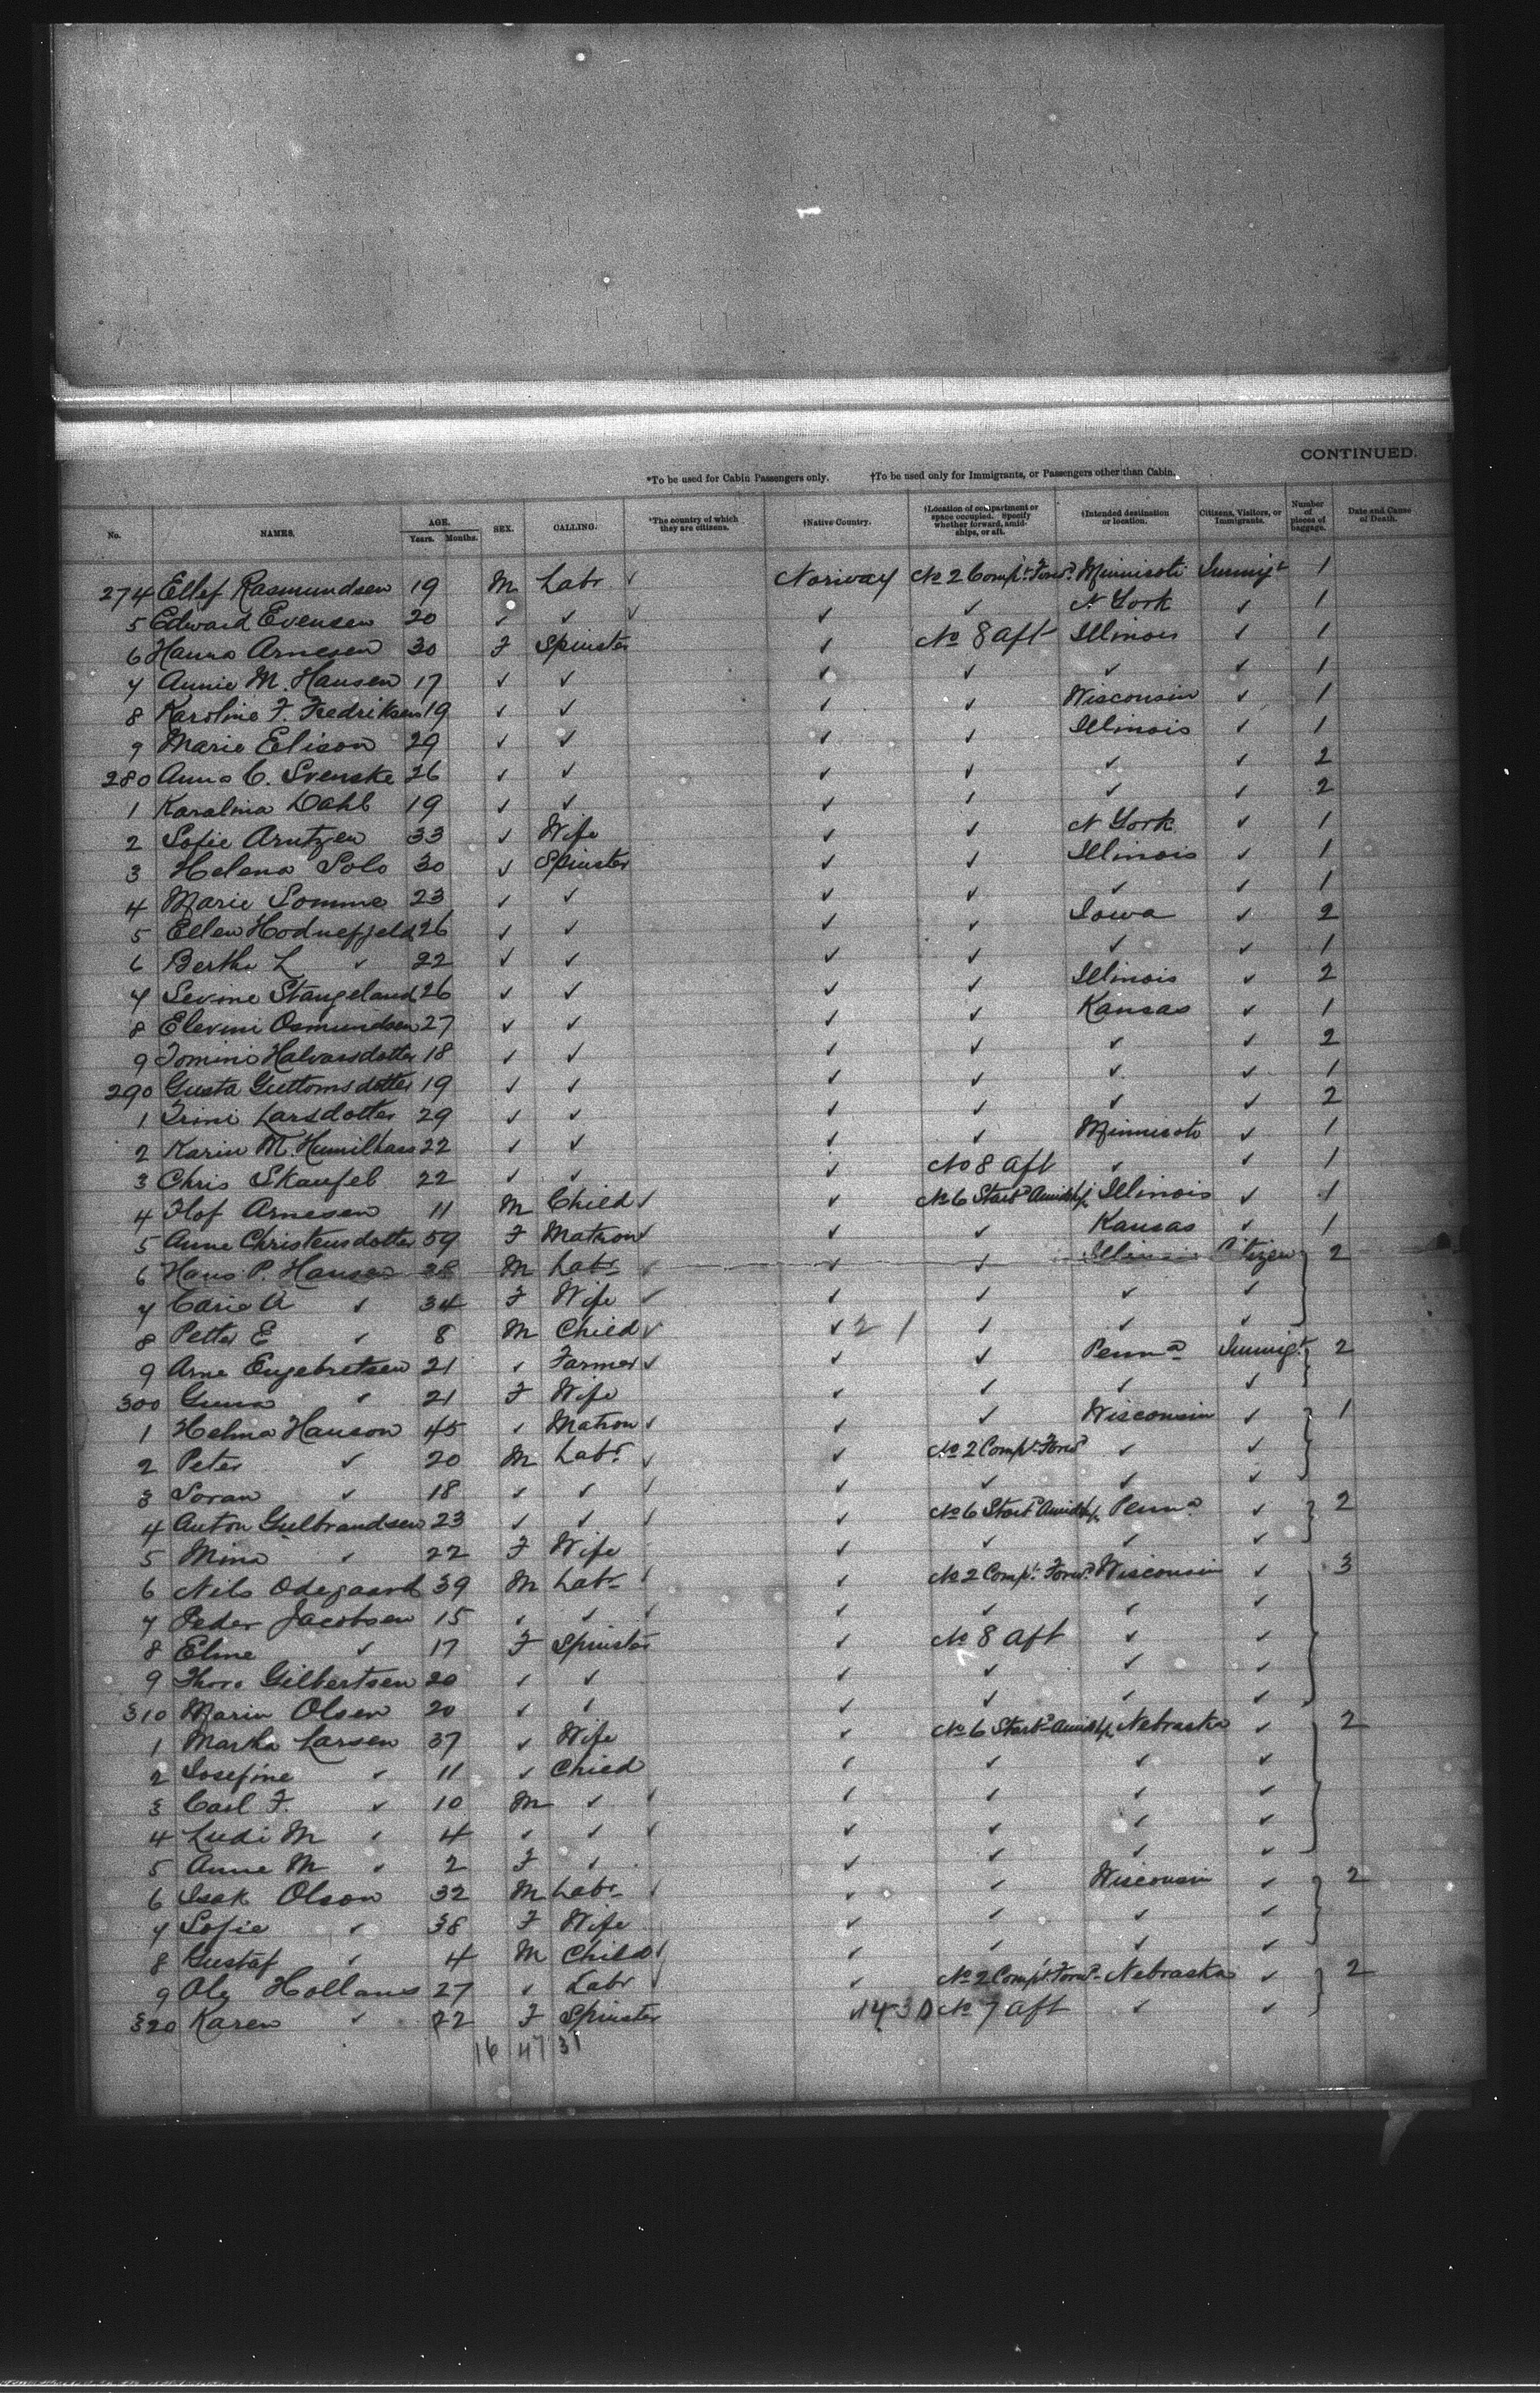 CONTINUED.
*To be used for Cabin Passengers only. †To be used only for Immigrants, or Passengers other than Cabin.
No. NAMES. AGE. Years. Months. SEX. CALLING. *The country of which they are citizens. †Native Country. †Location of compartment or space occupied. Specify whether forward, amidships, or aft. †Intended destination or location. Citizens, Visitors, or Immigrants. Number of pieces of baggage. Date and Cause of Death.
274 Ellef Rasmundsen 19 M Labr ✓ Norway No 2 Compt. Forwd. Minnisoti Immigt 1
5 Edward Evensen 20 ✓ ✓ ✓ ✓ ✓ N York ✓ 1
6 Hanna Arnesen 30 F Spinster ✓ No 8 Aft Illinois ✓ 1
7 Annie M. Hansen 17 ✓ ✓ ✓ ✓ ✓ ✓ 1
8 Karoline F. Fredriksen 19 ✓ ✓ ✓ ✓ Wisconsin ✓ 1
9 Marie Elison 29 ✓ ✓ ✓ ✓ Illinois ✓ 1
280 Anna C. Svenske 26 ✓ ✓ ✓ ✓ ✓ ✓ 2
1 Karalina Dahl 19 ✓ ✓ ✓ ✓ ✓ ✓ 2
2 Sofie Arntzen 33 ✓ Wife ✓ ✓ N York ✓ 1
3 Helena Solo 30 ✓ Spinster ✓ ✓ Illinois ✓ 1
4 Marie Somme 23 ✓ ✓ ✓ ✓ ✓ ✓ 1
5 Ellen Hodnefjeld 26 ✓ ✓ ✓ ✓ Iowa ✓ 2
6 Bertha L ✓ 22 ✓ ✓ ✓ ✓ ✓ ✓ 1
7 Sevine Stangeland 26 ✓ ✓ ✓ ✓ Illinois ✓ 2
8 Osmundsen 27 ✓ ✓ ✓ ✓ Kansas ✓ 1
9 Halvarsdotter 18 ✓ ✓ ✓ ✓ ✓ ✓ 2
290 Gusta Guttomsdotter 19 ✓ ✓ ✓ ✓ ✓ ✓ 1
1 Larsdotter 29 ✓ ✓ ✓ ✓ ✓ ✓ 2
2 Karin M. 22 ✓ ✓ ✓ ✓ Minnisoti ✓ 1
3 Chris 22 ✓ ✓ ✓ No 8 Aft ✓ ✓ 1
4 Arnesen 11 M Child ✓ ✓ No 6 Starbd Amidsh. Illinois ✓ 1
5 Anne Christensdotter 59 F Matron ✓ ✓ ✓ Kansas ✓ 1
6 Hans P. Hansen 38 M Labr ✓ ✓ ✓ Illinois Citizen 2
7 Carie A ✓ 34 F Wife ✓ ✓ ✓ ✓ ✓
8 Petter E ✓ 8 M Child ✓ ✓ 2 1 ✓ ✓ ✓
9 Arne Engebretsen 21 ✓ Farmer ✓ ✓ ✓ Penna Immigt 2
300 Gunia ✓ 21 F Wife ✓ ✓ ✓ ✓
1 Helma Hanson 45 ✓ Matron ✓ ✓ ✓ Wisconsin ✓ 1
2 Peter ✓ 20 M Labr ✓ ✓ No 2 Compt. Forwd ✓ ✓
3 Soran ✓ 18 ✓ ✓ ✓ ✓ ✓ ✓ ✓
4 Anton Gulbrandsen 23 ✓ ✓ ✓ ✓ No 6 Starbd Amidsh. Penna ✓ 2
5 Mina ✓ 22 F Wife ✓ ✓ ✓ ✓
6 Nils Odegaard 39 M Labr ✓ ✓ No 2 Compt. Forwd. Wisconsin ✓ 3
7 Peder Jacobsen 15 ✓ ✓ ✓ ✓ ✓ ✓ ✓
8 Eline ✓ 17 F Spinster ✓ No 8 Aft ✓ ✓
9 Thora Gilbertsen 20 ✓ ✓ ✓ ✓ ✓ ✓
310 Marin Olsen 20 ✓ ✓ ✓ ✓ ✓ ✓
1 Martha Larsen 37 ✓ Wife ✓ No 6 Starbd Amidsh. Nebraska ✓ 2
2 Josefine ✓ 11 ✓ Child ✓ ✓ ✓ ✓
3 Carl F. ✓ 10 M ✓ ✓ ✓ ✓ ✓ ✓
4 Ludi M ✓ 4 ✓ ✓ ✓ ✓ ✓ ✓ ✓
5 Anne M ✓ 2 F ✓ ✓ ✓ ✓ ✓
6 Isak Olson 32 M Labr ✓ ✓ ✓ Wisconsin ✓ 2
7 Sofie ✓ 38 F Wife ✓ ✓ ✓ ✓
8 Gustaf ✓ 4 M Child ✓ ✓ ✓ ✓ ✓
9 Ole Hollans 27 ✓ Labr ✓ ✓ No 2 Compt. Forwd. Nebraska ✓ 2
320 Karen ✓ 22 F Spinster No 7 Aft ✓ ✓
16 47 31